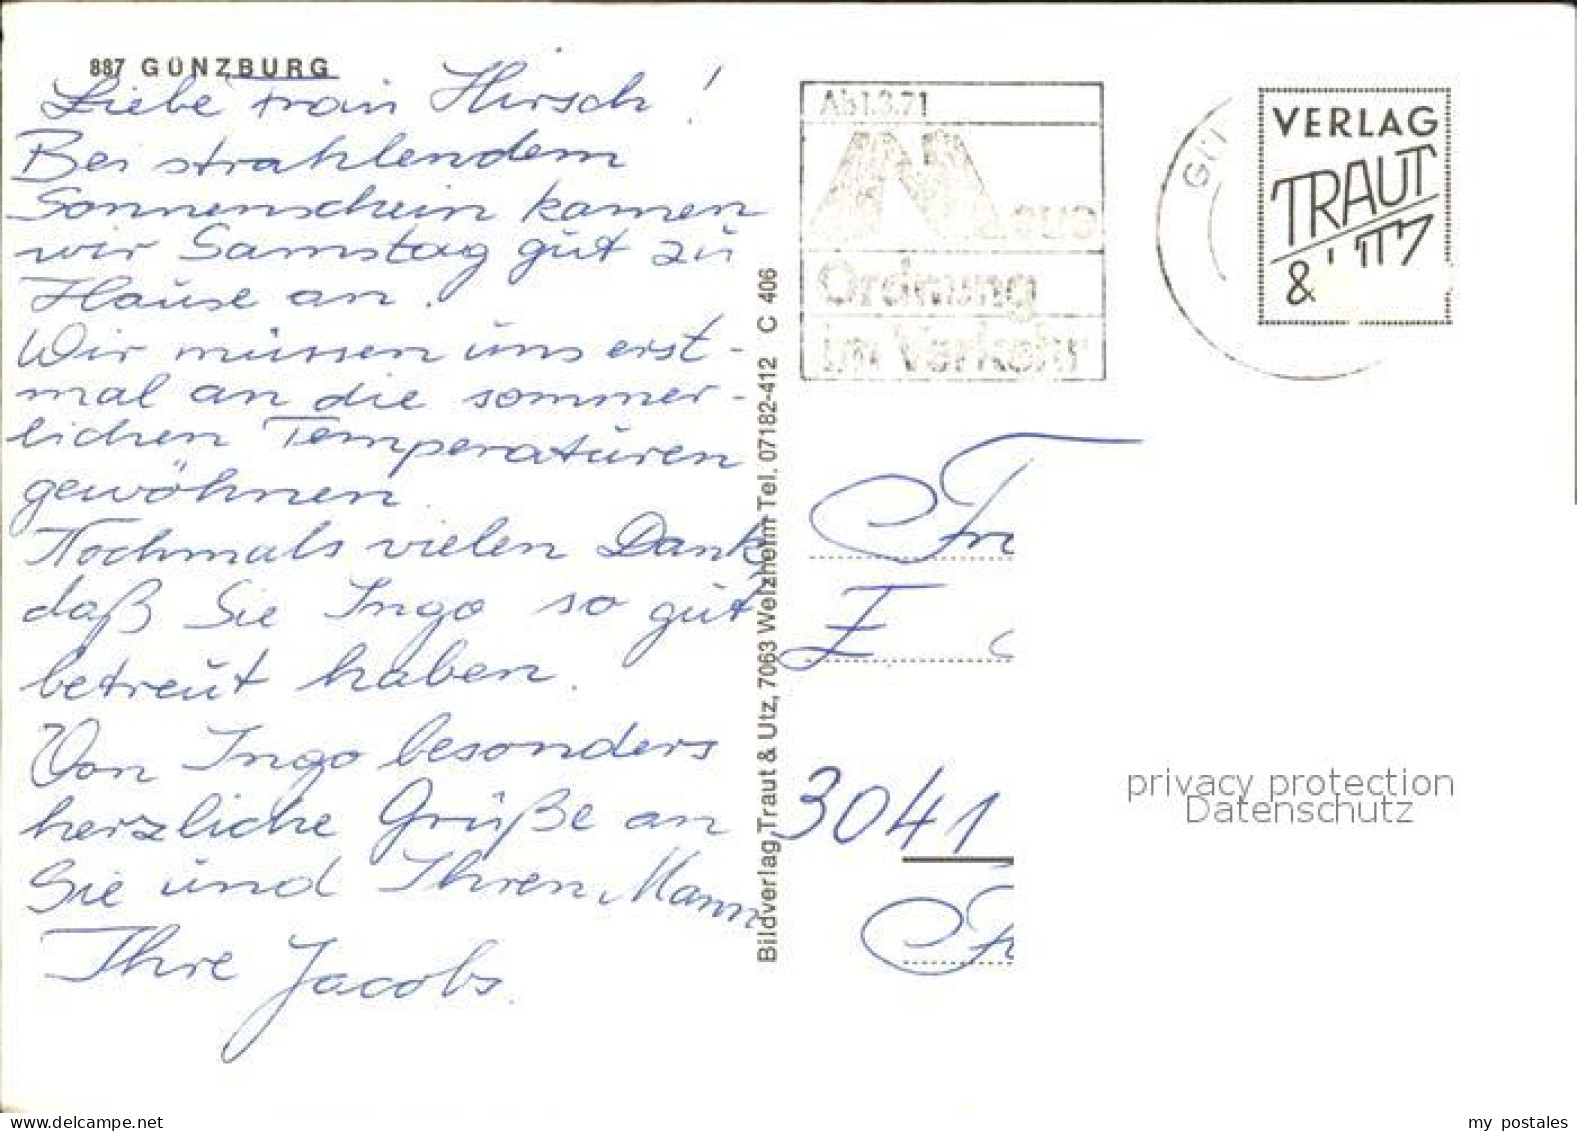 887 GÜNZBURG
Liebe Frau Hirsch!
Bei strahlendem
Sonnenschein kamen
wir Samstag gut zu
Hause an.
Wir müssen uns erst-
mal an die sommer-
lichen Temperaturen
gewöhnen.
Nochmals vielen Dank,
daß Sie Ingo so gut
betreut haben.
Von Ingo besonders
herzliche Grüße an
Sie und Ihren Mann
Ihre Jacobs.
Bildverlag Traut & Utz, 7063 Welzheim Tel. 07182-412 C 406
Ab 1.3.71
Neue
Ordnung
im Verkehr
GÜ
VERLAG
TRAUT
& UTZ
3041
privacy protection
Datenschutz
my postales